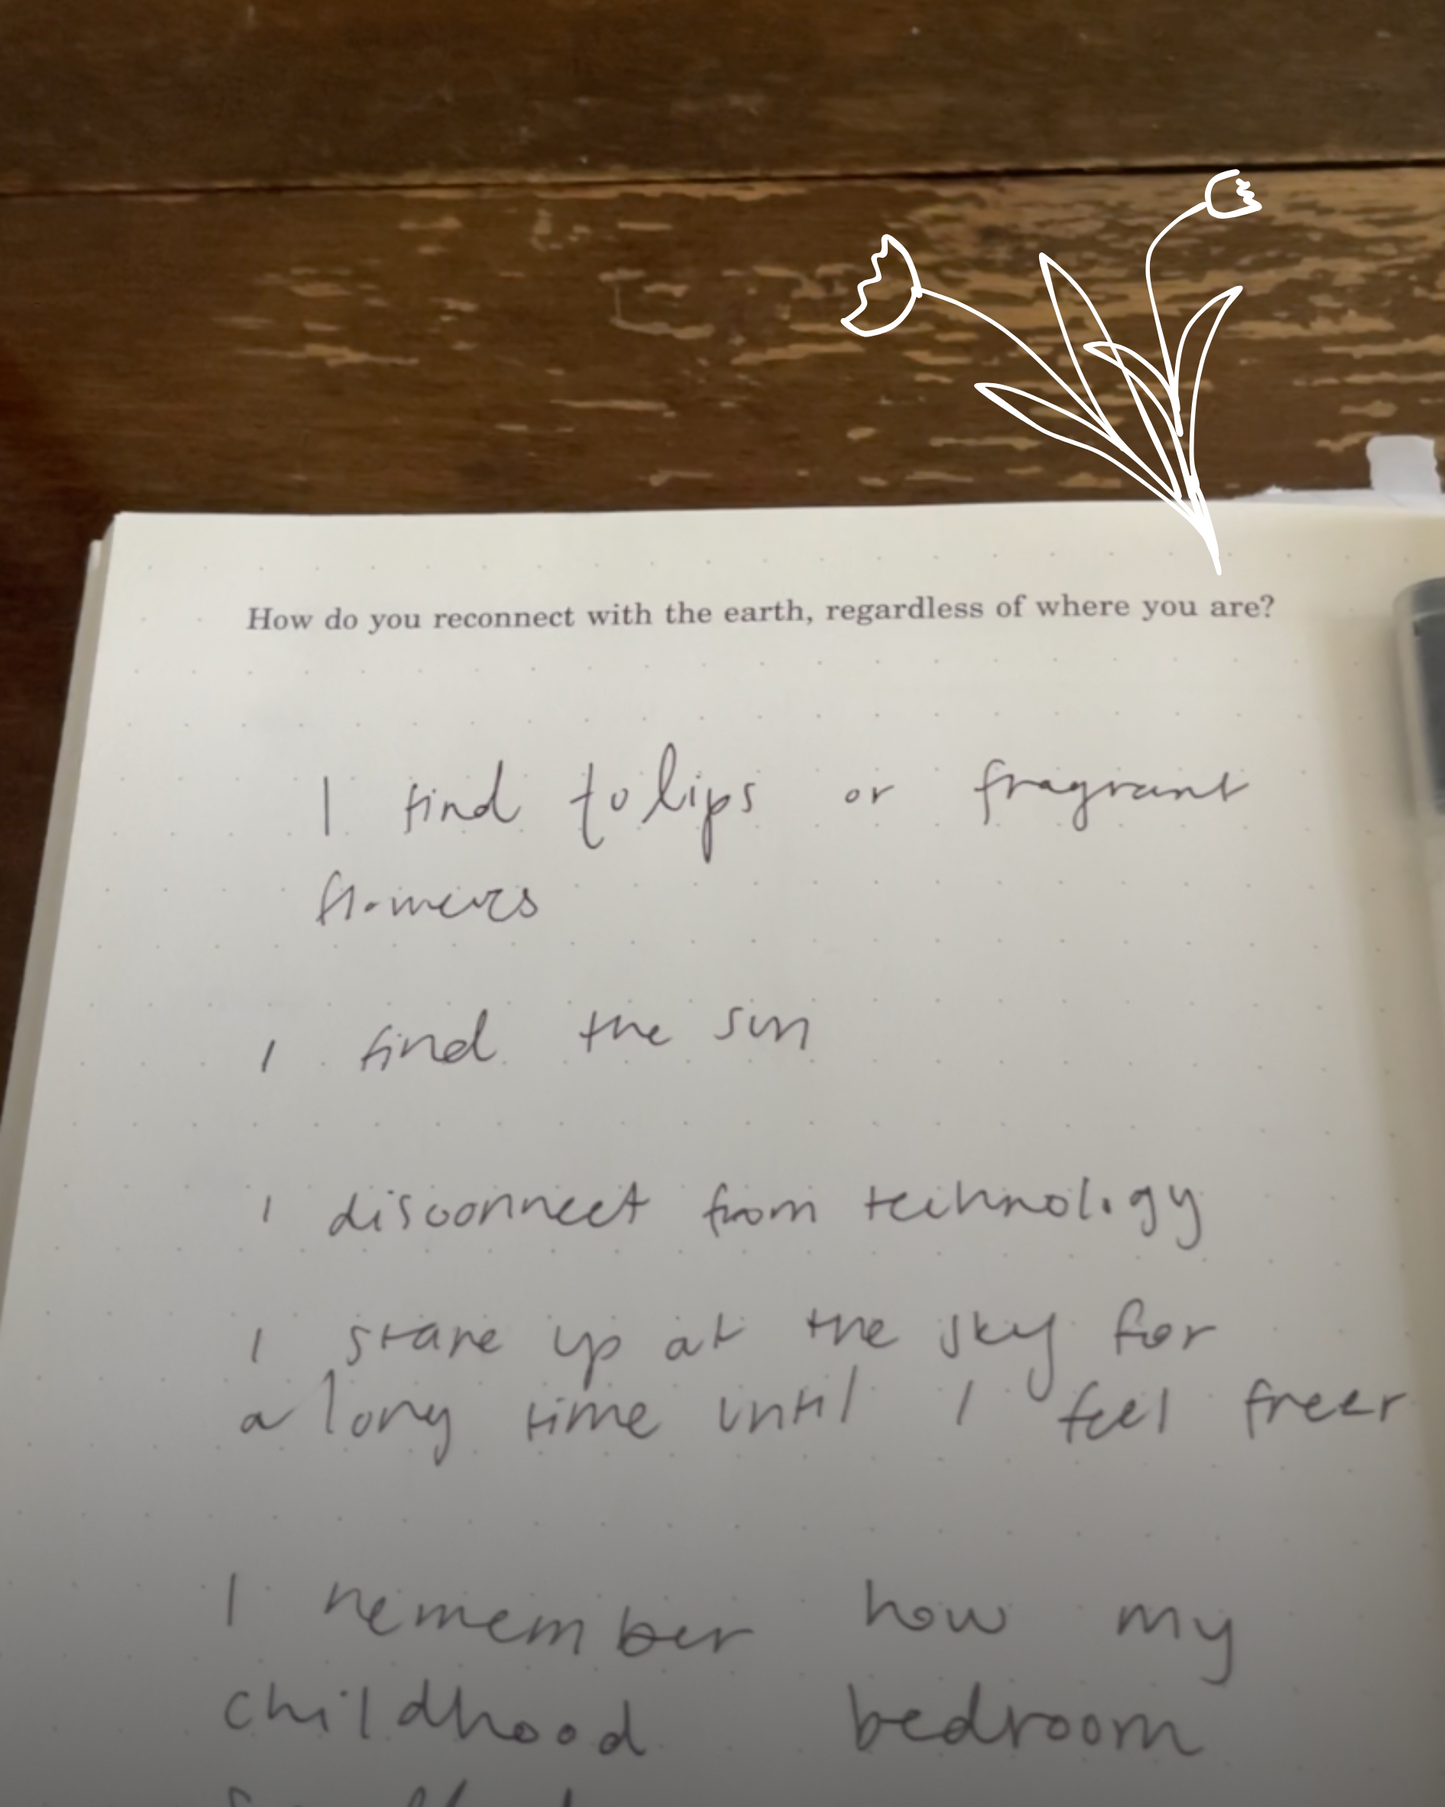 How do you reconnect with the earth, regardless of where you are?
I find tolips or fragrant
flowers
I find the sun
I disconnect from technology
I stare up at the sky for
a long time until I feel freer
I remember how my
childhood bedroom